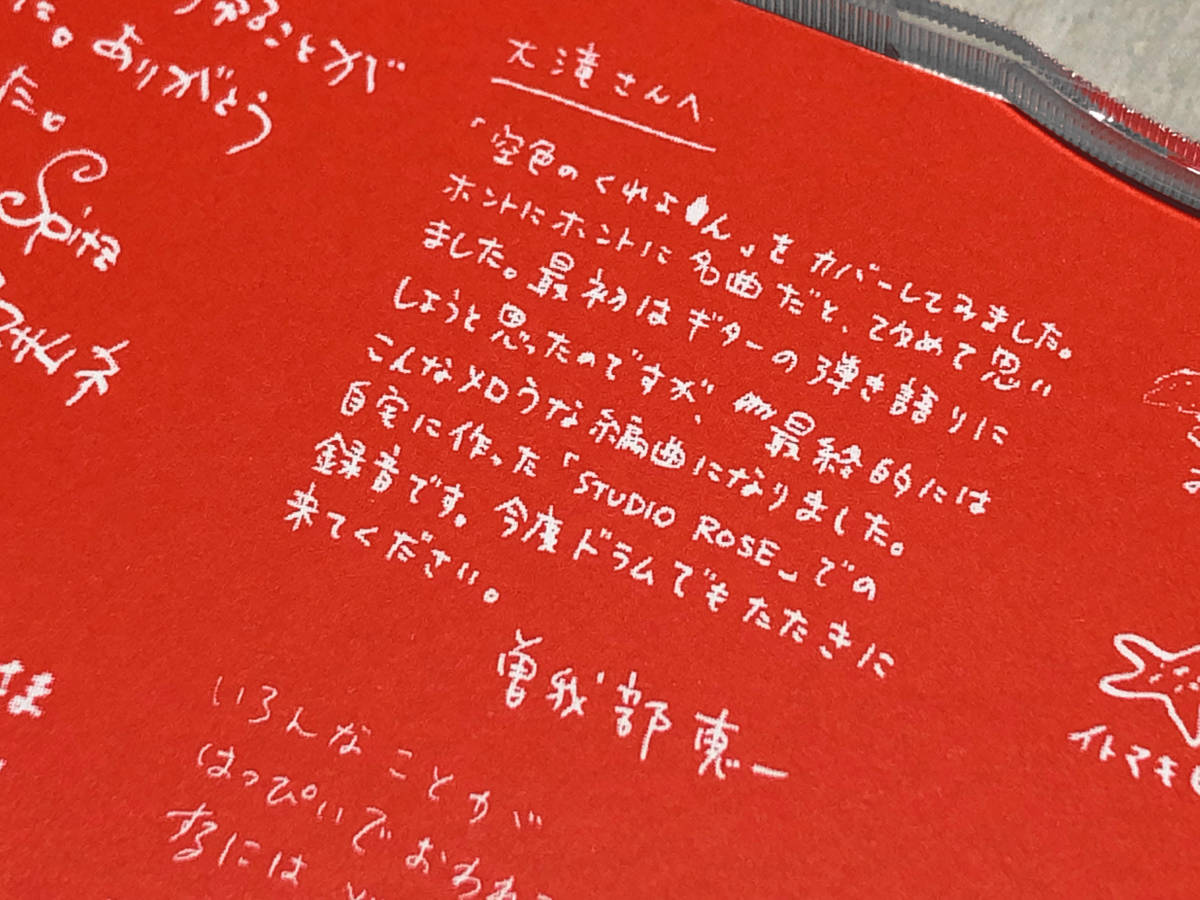 ることが
た。ありがとう
た。
Spitz
大濱さんへ
「空色のくれよん」をカバーしてみました。
ホントにホントに名曲だと、改めて思い
ました。最初はギターの弾き語りに
しようと思ったのですが、最終的には
こんなメロウな編曲になりました。
自宅に作った「STUDIO ROSE」での
録音です。今度ドラムでもたたきに
来てください。
曽我部恵一
さま
いろんなことが
はっぴいでおわれ
するには
イトマキ